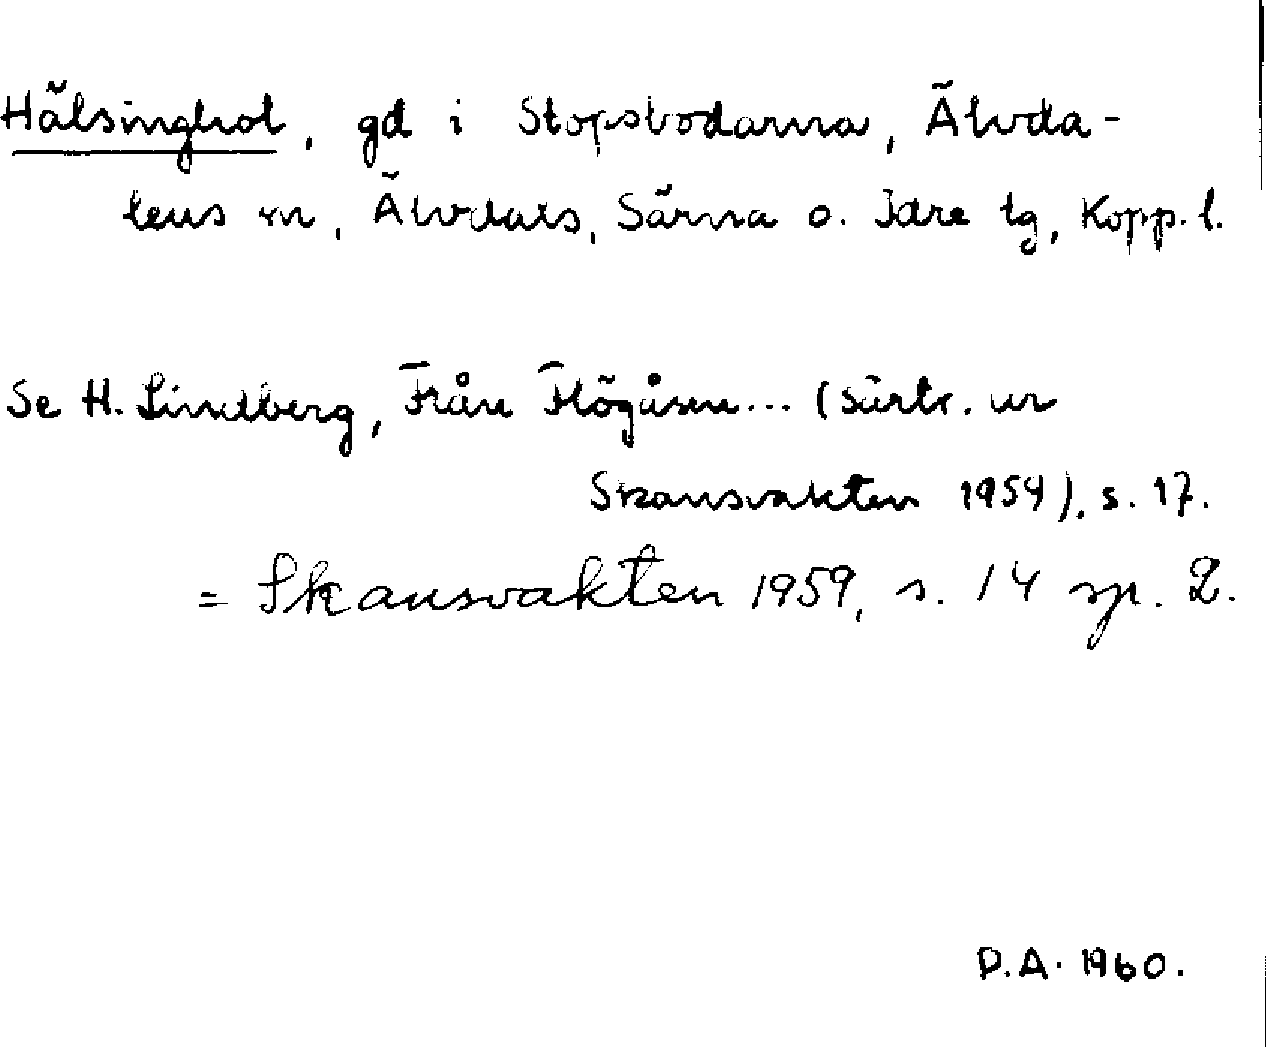 Hälsinghol, gd i Stopsbodarna, Älvda-
lens sn, Älvdals, Särna o. Idre tg, Kopp. l.
Se H. Lindberg, Från Flögåsen... (särtr. ur
Skansvakten 1959), s. 17.
= Skansvakten 1959, s. 14 sp. 2.
D.A. 1960.